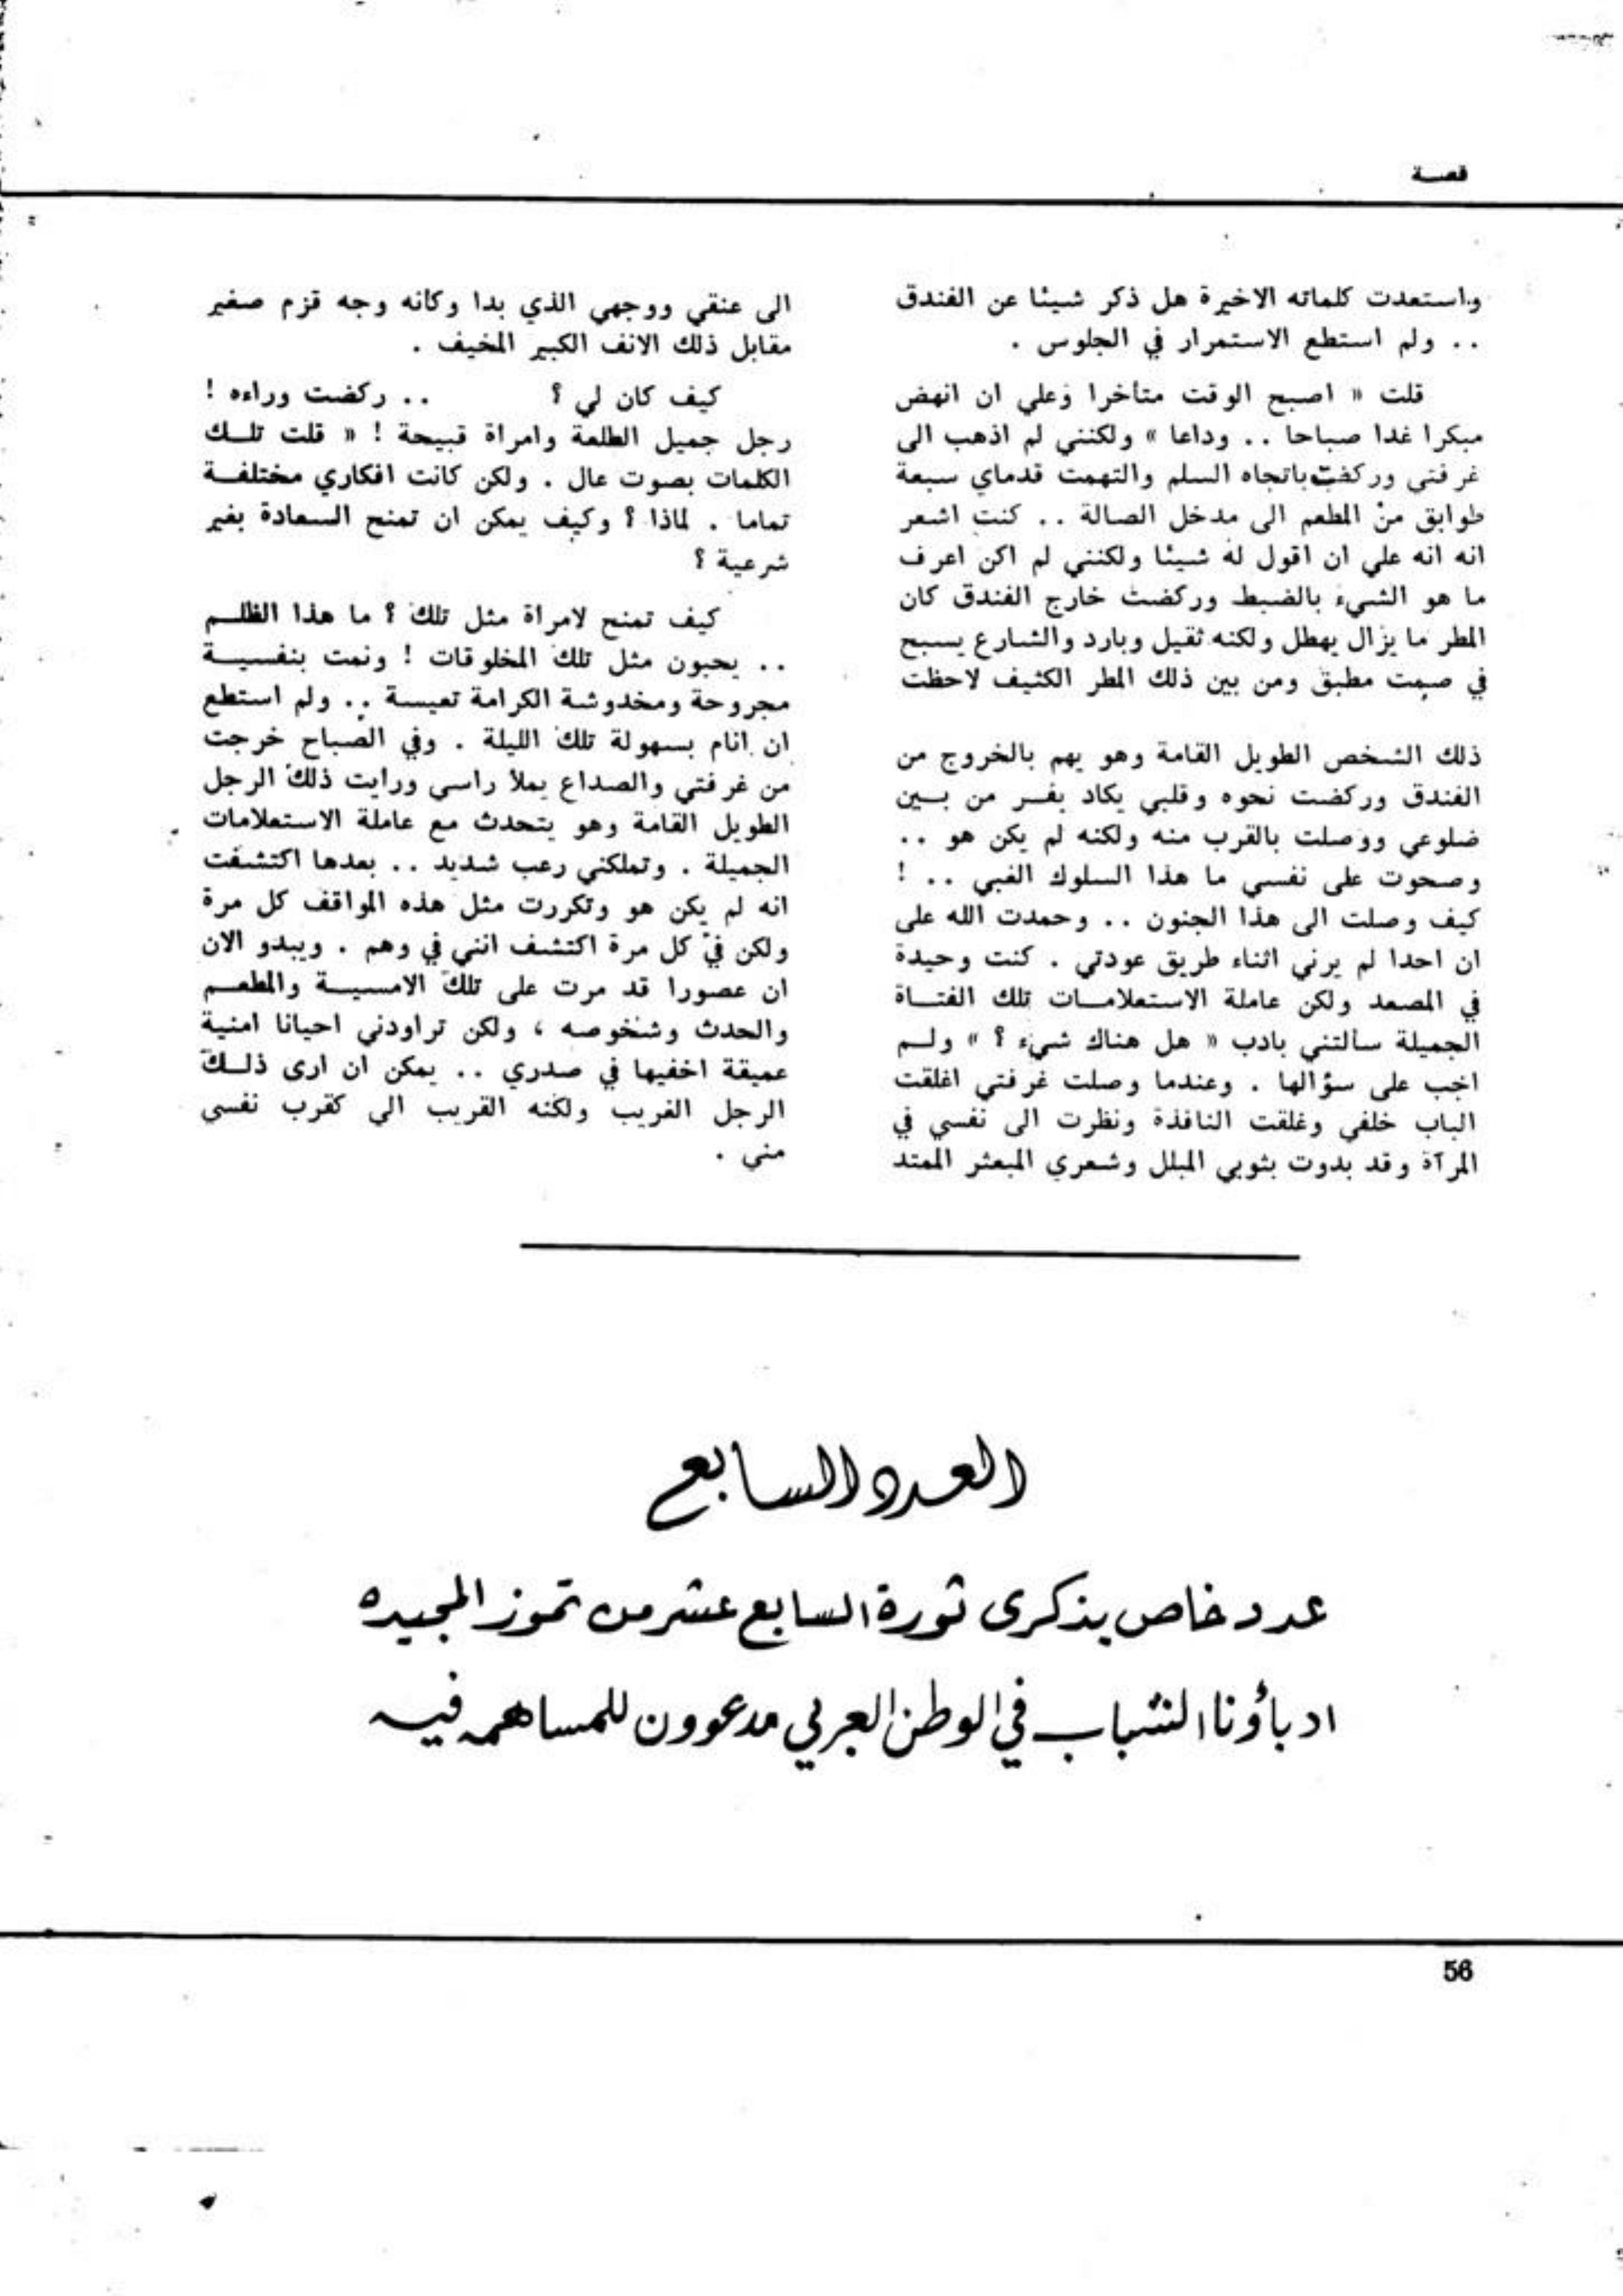 قصة
واستعدت كلماته الاخيرة هل ذكر شيئا عن الفندق
.. ولم استطع الاستمرار في الجلوس .
قلت « اصبح الوقت متأخرا وعلي ان انهض
مبكرا غدا صباحا .. وداعا » ولكنني لم اذهب الى
غرفتي وركضت باتجاه السلم والتهمت قدماي سبعة
طوابق من المطعم الى مدخل الصالة .. كنت اشعر
انه انه علي ان اقول له شيئا ولكنني لم اكن اعرف
ما هو الشيء بالضبط وركضت خارج الفندق كان
المطر ما يزال يهطل ولكنه ثقيل وبارد والشارع يسبح
في صمت مطبق ومن بين ذلك المطر الكثيف لاحظت
ذلك الشخص الطويل القامة وهو يهم بالخروج من
الفندق وركضت نحوه وقلبي يكاد يفر من بين
ضلوعي ووصلت بالقرب منه ولكنه لم يكن هو ..
وصحوت على نفسي ما هذا السلوك الغبي .. !
كيف وصلت الى هذا الجنون .. وحمدت الله على
ان احدا لم يرني اثناء طريق عودتي . كنت وحيدة
في المصعد ولكن عاملة الاستعلامات تلك الفتاة
الجميلة سالتني بادب « هل هناك شيء ؟ » ولم
اجب على سؤالها . وعندما وصلت غرفتي اغلقت
الباب خلفي وغلقت النافذة ونظرت الى نفسي في
المرآة وقد بدوت بثوبي المبلل وشعري المبعثر الممتد
الى عنقي ووجهي الذي بدا وكانه وجه قزم صغير
مقابل ذلك الانف الكبير المخيف .
كيف كان لي ؟ .. ركضت وراءه !
رجل جميل الطلعة وامراة قبيحة ! « قلت تلك
الكلمات بصوت عال . ولكن كانت افكاري مختلفة
تماما . لماذا ؟ وكيف يمكن ان تمنح السعادة بغير
شرعية ؟
كيف تمنح لامراة مثل تلك ؟ ما هذا الظلم
.. يحبون مثل تلك المخلوقات ! ونمت بنفسية
مجروحة ومخدوشة الكرامة تعيسة .. ولم استطع
ان انام بسهولة تلك الليلة . وفي الصباح خرجت
من غرفتي والصداع يملأ راسي ورايت ذلك الرجل
الطويل القامة وهو يتحدث مع عاملة الاستعلامات
الجميلة . وتملكني رعب شديد .. بعدها اكتشفت
انه لم يكن هو وتكررت مثل هذه المواقف كل مرة
ولكن في كل مرة اكتشف انني في وهم . ويبدو الان
ان عصورا قد مرت على تلك الامسية والمطعم
والحدث وشخوصه ، ولكن تراودني احيانا امنية
عميقة اخفيها في صدري .. يمكن ان ارى ذلك
الرجل الغريب ولكنه القريب الي كقرب نفسي
مني .
العدد السابع
عدد خاص بذكرى ثورة السابع عشر من تموز المجيده
ادباؤنا الشباب في الوطن العربي مدعوون للمساهمه فيه
56